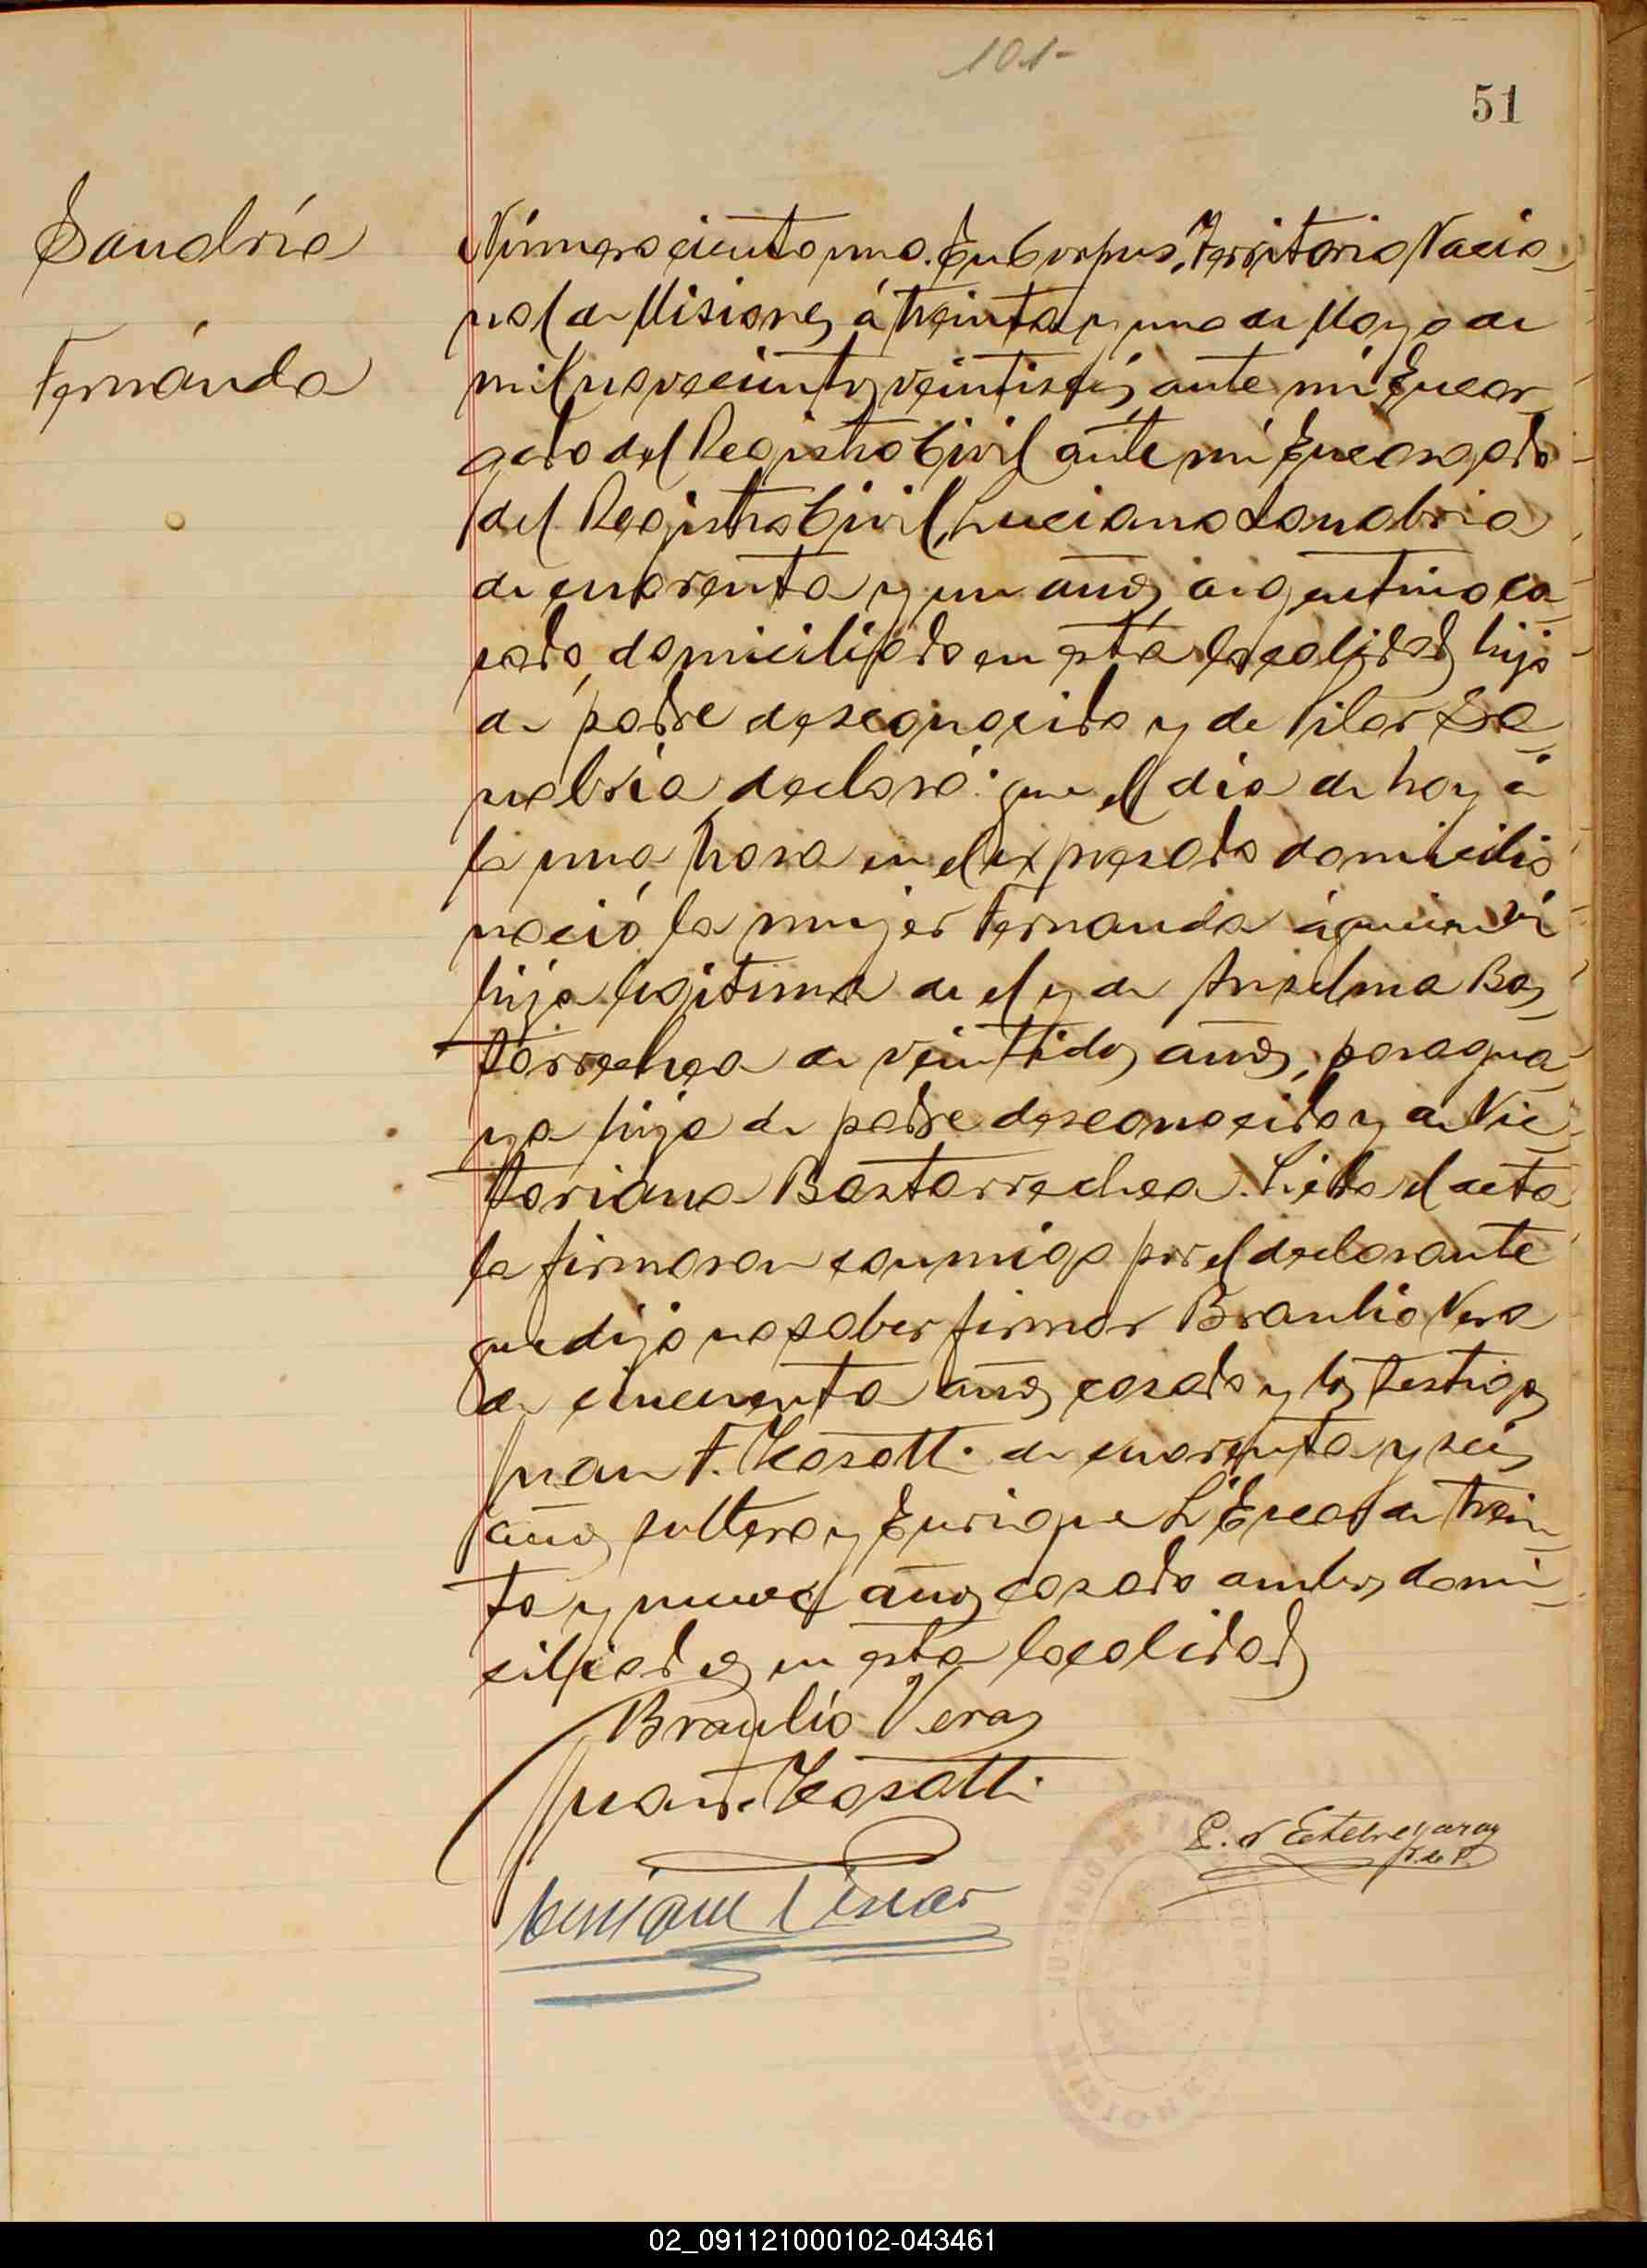 101-
51
Sanabria
Fernanda
Número ciento uno. En Corpus, Territorio Nacio-
nal de Misiones á treinta y uno de Mayo de
mil novecientos veintiseis, ante mi Encar-
gado del Registro Civil ante mi Encargado
del Registro Civil, Luciano Sanabria
de cuarenta y un años, argentino ca-
sado, domiciliado en esta localidad, hijo
de padre desconocido y de Pilar Sa-
nabria declaró: que el dia de hoy á
la una hora en el expresado domicilio
nació la mujer Fernanda á quien vi
hija legitima de el y de Anselma Bas-
tarrechea de veintidos años, paragua-
ya hija de padre desconocido y de Vic-
toriana Bastarrechea. Leida el acta
la firmaron conmigo por el declarante
que dijo no saber firmar Braulio Vera
de cincuenta años casado y los testigos
Juan F. Kosatti de cuarenta y seis
años soltero y Enrique L'Escar de trein-
ta y nueve años casado ambos domi-
ciliados en esta localidad
Braulio Veras
Juan F. Kosatti
E. D Etchegaray
J. de P.
JUZGADO DE PAZ
CORPUS
MISIONES
02_091121000102-043461